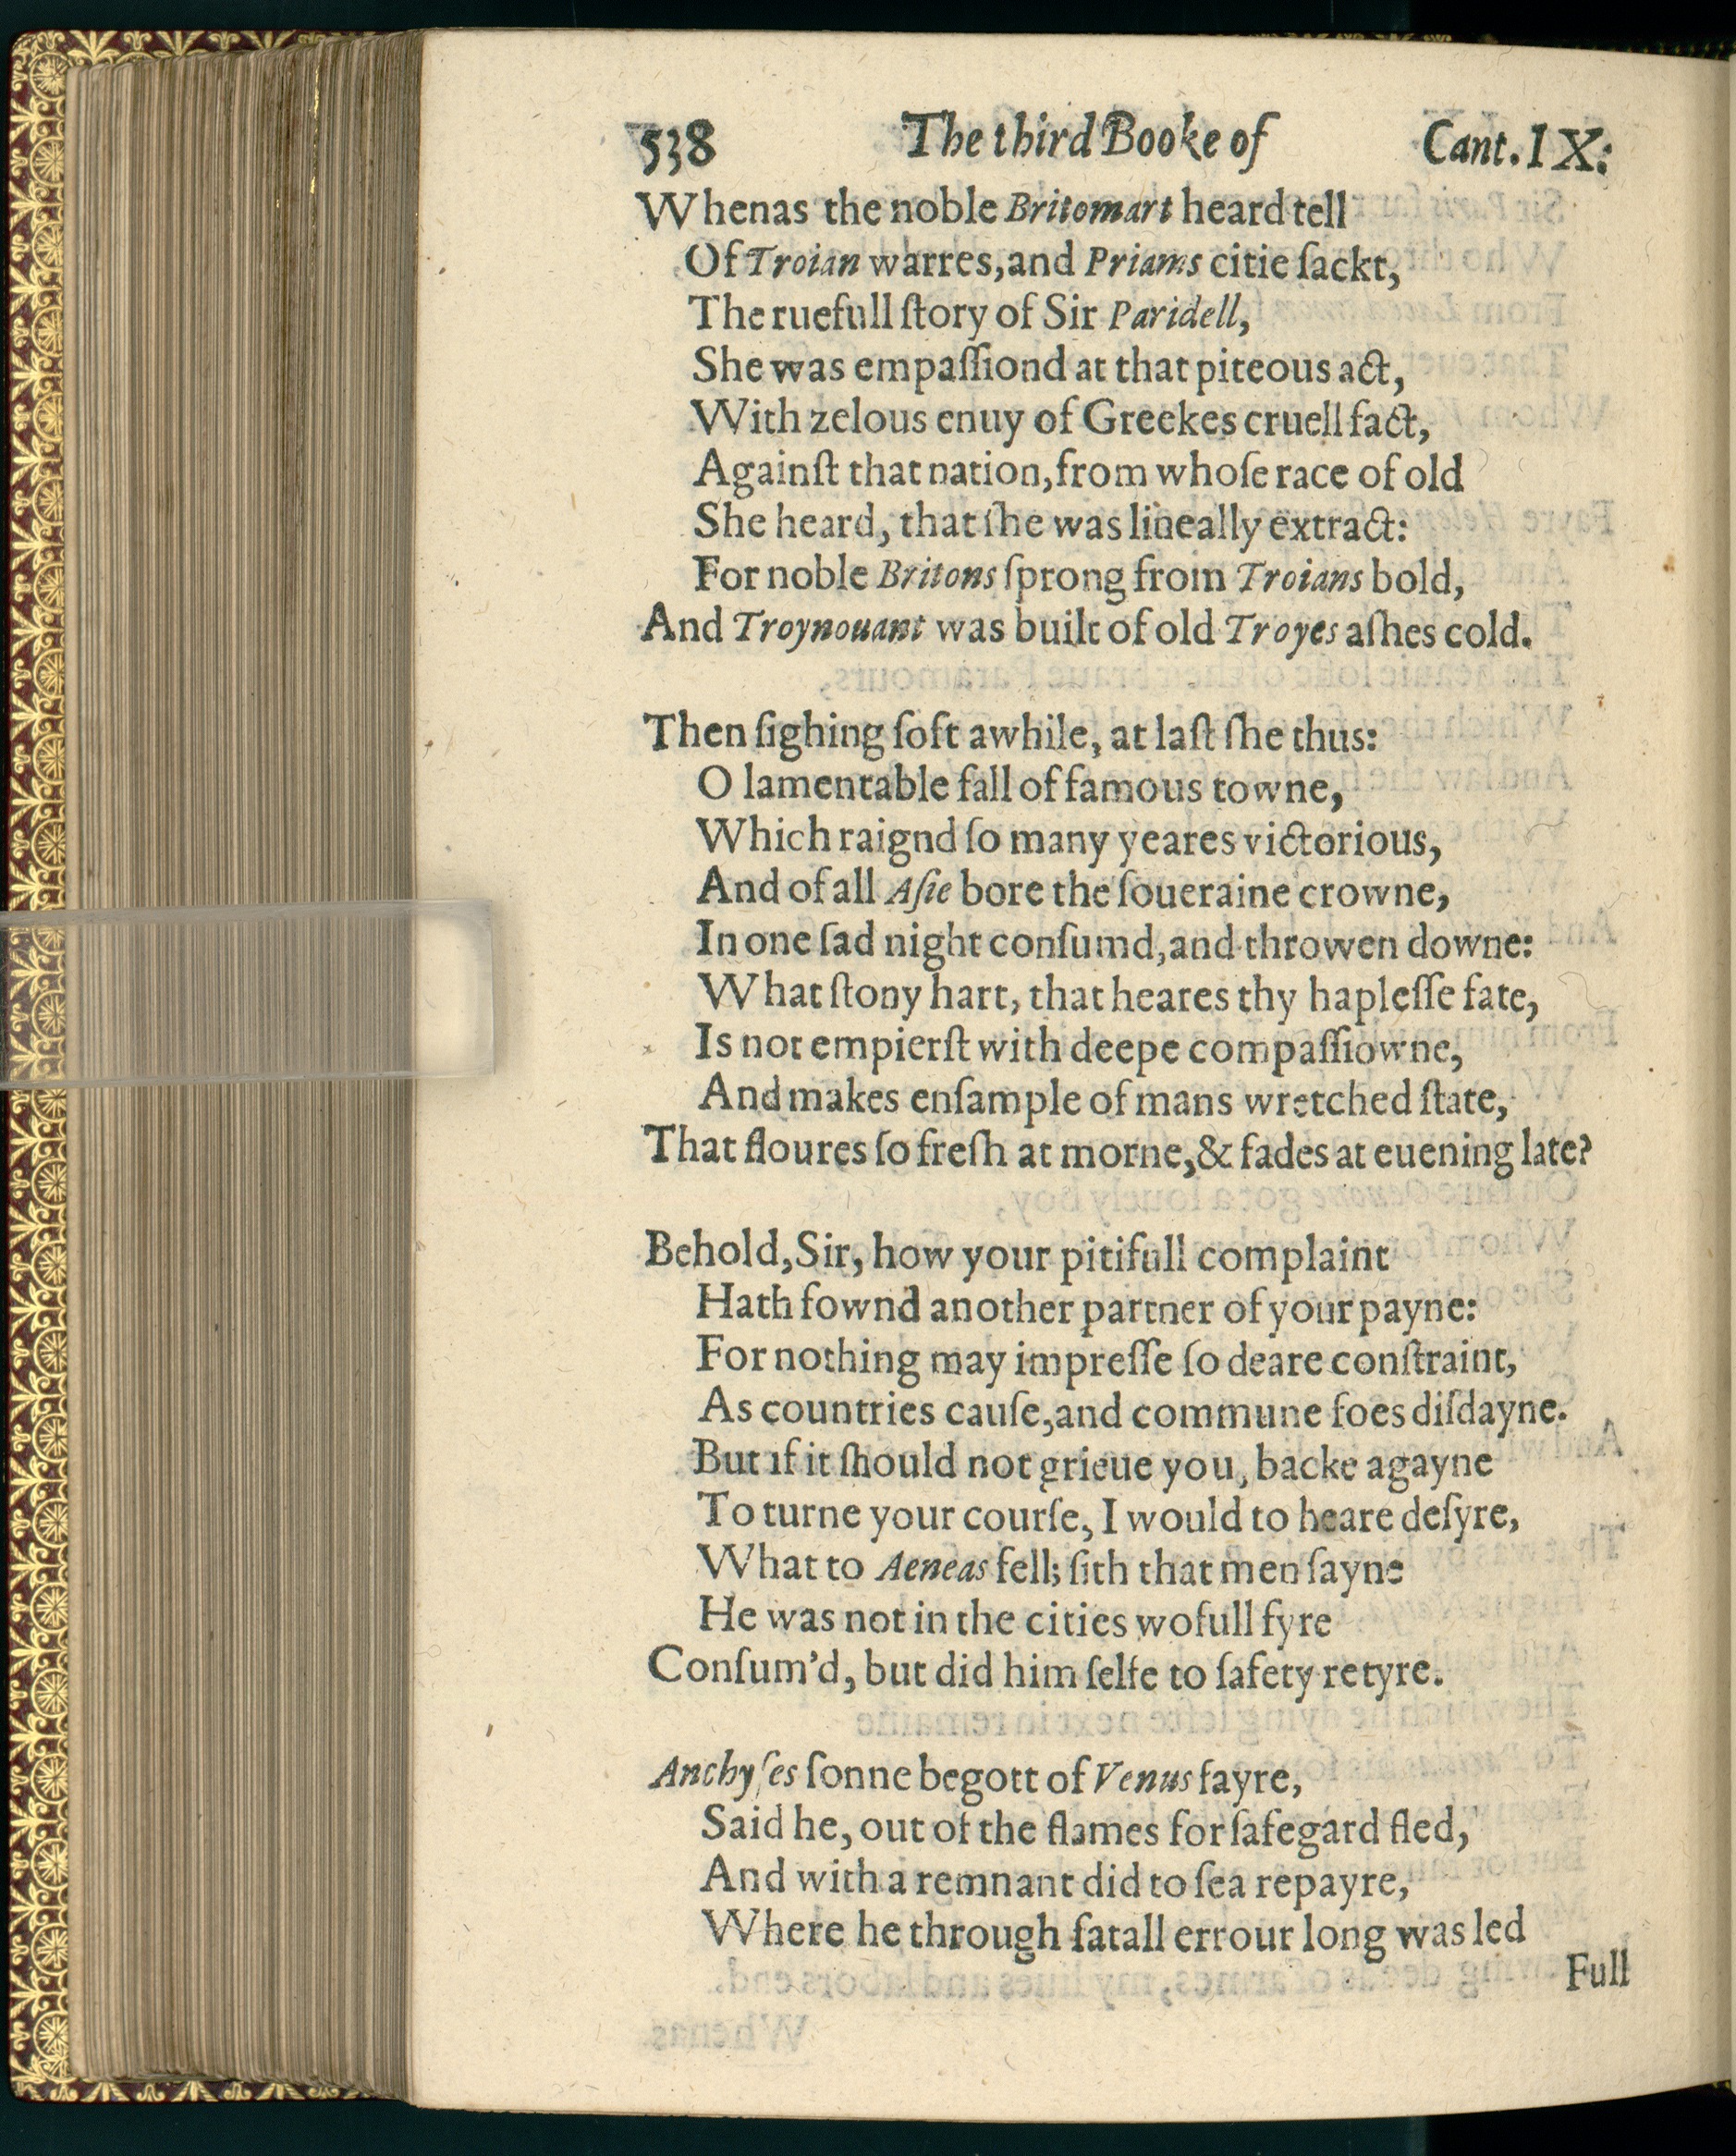 538 The third Booke of Cant. IX:
Whenas the noble Britomart heard tell
Of Troian warres, and Priams citie ſackt,
The ruefull ſtory of Sir Paridell,
She was empaſſiond at that piteous act,
With zelous enuy of Greekes cruell fact,
Againſt that nation, from whoſe race of old
She heard, that ſhe was lineally extract:
For noble Britons ſprong from Troians bold,
And Troynouant was built of old Troyes aſhes cold.
Then ſighing ſoft awhile, at laſt ſhe thus:
O lamentable fall of famous towne,
Which raignd ſo many yeares victorious,
And of all Aſie bore the ſoueraine crowne,
In one ſad night conſumd, and throwen downe:
What ſtony hart, that heares thy hapleſſe fate,
Is not empierſt with deepe compaſſiowne,
And makes enſample of mans wretched ſtate,
That floures ſo freſh at morne, & fades at euening late?
Behold, Sir, how your pitifull complaint
Hath fownd another partner of your payne:
For nothing may impreſſe ſo deare conſtraint,
As countries cauſe, and commune foes diſdayne.
But if it ſhould not grieue you, backe agayne
To turne your courſe, I would to heare deſyre,
What to Aeneas fell; ſith that men ſayne
He was not in the cities wofull fyre
Conſum'd, but did him ſelfe to ſafety retyre.
Anchyſes ſonne begott of Venus fayre,
Said he, out of the flames for ſafegard fled,
And with a remnant did to ſea repayre,
Where he through fatall errour long was led
Full